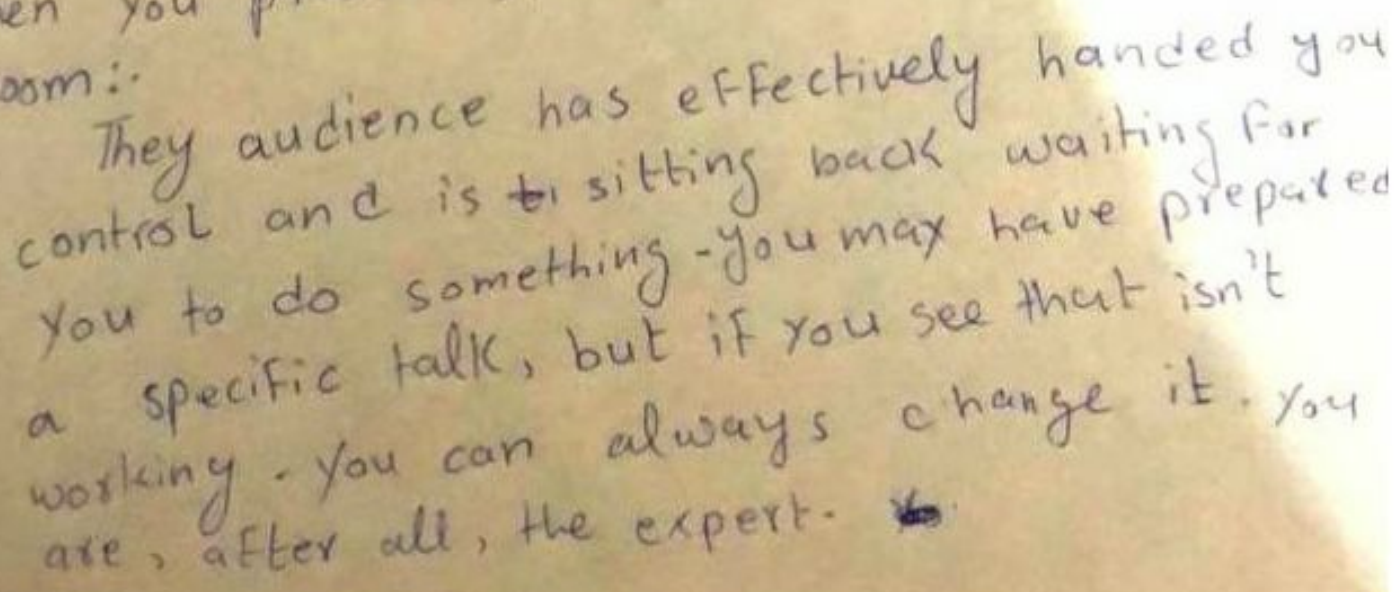 en you
oom:-
They audience has effectively handed you
control and is sitting back waiting for
you to do something - you may have prepared
a specific talk, but if you see that isn't
working. you can always change it. you
are, after all, the expert.